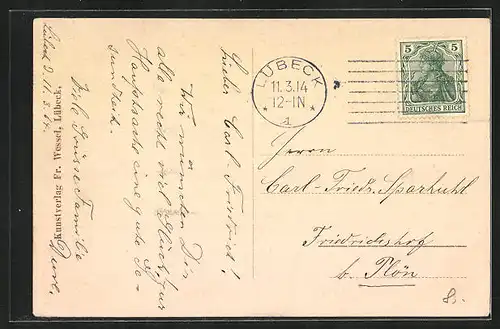 Lübeck d. 11.3.14.
Lieber Carl Friedrich!
Wir wünschen Dir
alle recht viel Glück, zur
Hauptsache eine gute Ge-
sundheit.
Viele Grüsse Familie
Kunstverlag Fr. Wessel, Lübeck.
LÜBECK
11.3.14
*12-1N*
1
5 5
DEUTSCHES REICH
Herrn
Carl-Friedr. Sparkuhl
Friedrichshof
b. Plön